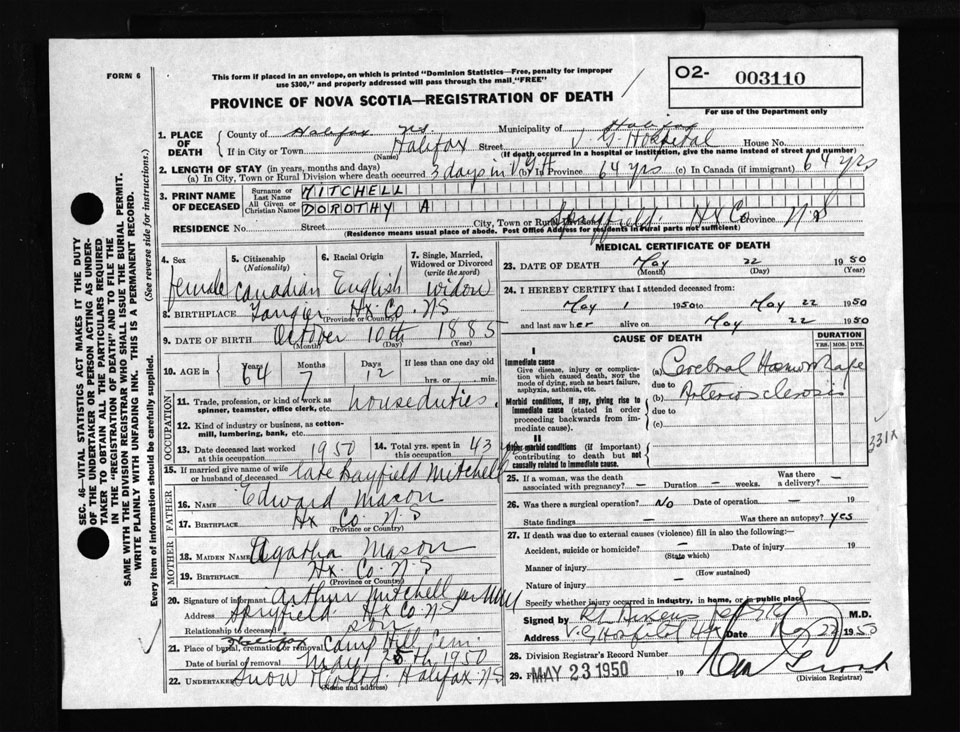 FORM 6
This form if placed in an envelope, on which is printed "Dominion Statistics—Free, penalty for improper
use $300," and properly addressed will pass through the mail "FREE"
PROVINCE OF NOVA SCOTIA—REGISTRATION OF DEATH
O2- 003110
For use of the Department only
1. PLACE OF DEATH
County of Halifax N.S. Municipality of Halifax
If in City or Town Halifax Street V G Hospital House No.
(Name) (If death occurred in a hospital or institution, give the name instead of street and number)
2. LENGTH OF STAY (in years, months and days)
(a) In City, Town or Rural Division where death occurred 3 days in V.G.H (b) In Province 64 yrs (c) In Canada (if immigrant) 64 yrs
3. PRINT NAME OF DECEASED
Surname or Last Name MITCHELL
All Given or Christian Names DOROTHY A
RESIDENCE No. Street City, Town or Rural Division Spryfield. HX Co Province N.S
(Residence means usual place of abode. Post Office Address for residents in rural parts not sufficient)
4. Sex
female
5. Citizenship (Nationality)
Canadian
6. Racial Origin
English
7. Single, Married, Widowed or Divorced (write the word)
widow
8. BIRTHPLACE Tangier Hx Co. N.S
(Province or Country)
9. DATE OF BIRTH October 10th 1885
(Month) (Day) (Year)
10. AGE in Years 64 Months 7 Days 12 If less than one day old
hrs. or min.
OCCUPATION
11. Trade, profession, or kind of work as
spinner, teamster, office clerk, etc. houseduties.
12. Kind of industry or business, as cotton-
mill, lumbering, bank, etc.
13. Date deceased last worked at this occupation 1950
14. Total yrs. spent in this occupation 43 yrs
15. If married give name of wife or husband of deceased late Hayfield Mitchell
FATHER
16. NAME Edward Mason
17. BIRTHPLACE Hx Co N.S
(Province or Country)
MOTHER
18. MAIDEN NAME Agatha Mason
19. BIRTHPLACE Hx. Co. N.S
(Province or Country)
20. Signature of informant Arthur Mitchell per
Address Spryfield. Hx Co NS
Relationship to deceased son
21. Place of burial, cremation or removal Halifax Camp Hill Cem.
Date of burial or removal May 25th 1950
22. Undertaker Snow Halifax. NS
(Name and address)
MEDICAL CERTIFICATE OF DEATH
23. DATE OF DEATH May 22 1950
(Month) (Day) (Year)
24. I HEREBY CERTIFY that I attended deceased from:
May 1 1950 to May 22 1950
and last saw her alive on May 22 1950
CAUSE OF DEATH
DURATION
YRS. MOS. DYS.
I
Immediate cause
Give disease, injury or complica-
tion which caused death, not the
mode of dying, such as heart failure,
asphyxia, asthenia, etc.
(a) Cerebral Haemorrhage
due to
Morbid conditions, if any, giving rise to
immediate cause (stated in order
proceeding backwards from im-
mediate cause).
(b) Arteriosclerosis
due to
(c)
331X
II
Other morbid conditions (if important)
contributing to death but not
causally related to immediate cause.
25. If a woman, was the death
associated with pregnancy? – Duration – weeks. Was there a delivery? –
26. Was there a surgical operation? No Date of operation – 19
State findings – Was there an autopsy? yes
27. If death was due to external causes (violence) fill in also the following:—
Accident, suicide or homicide? – Date of injury 19
(State which)
Manner of injury –
(How sustained)
Nature of injury –
Specify whether injury occurred in industry, in home, or in public place
Signed by M.D.
Address V.G Hospital Hfx Date May 22 1950
28. Division Registrar's Record Number
29. Filed MAY 23 1950 19
(Division Registrar)
SEC. 46—VITAL STATISTICS ACT MAKES IT THE DUTY
OF THE UNDERTAKER OR PERSON ACTING AS UNDER-
TAKER TO OBTAIN ALL THE PARTICULARS REQUIRED
IN THE "REGISTRATION OF DEATH" AND TO FILE THE
SAME WITH THE DIVISION REGISTRAR WHO SHALL ISSUE THE BURIAL PERMIT.
WRITE PLAINLY WITH UNFADING INK. THIS IS A PERMANENT RECORD.
Every item of information should be carefully supplied. (See reverse side for instructions.)